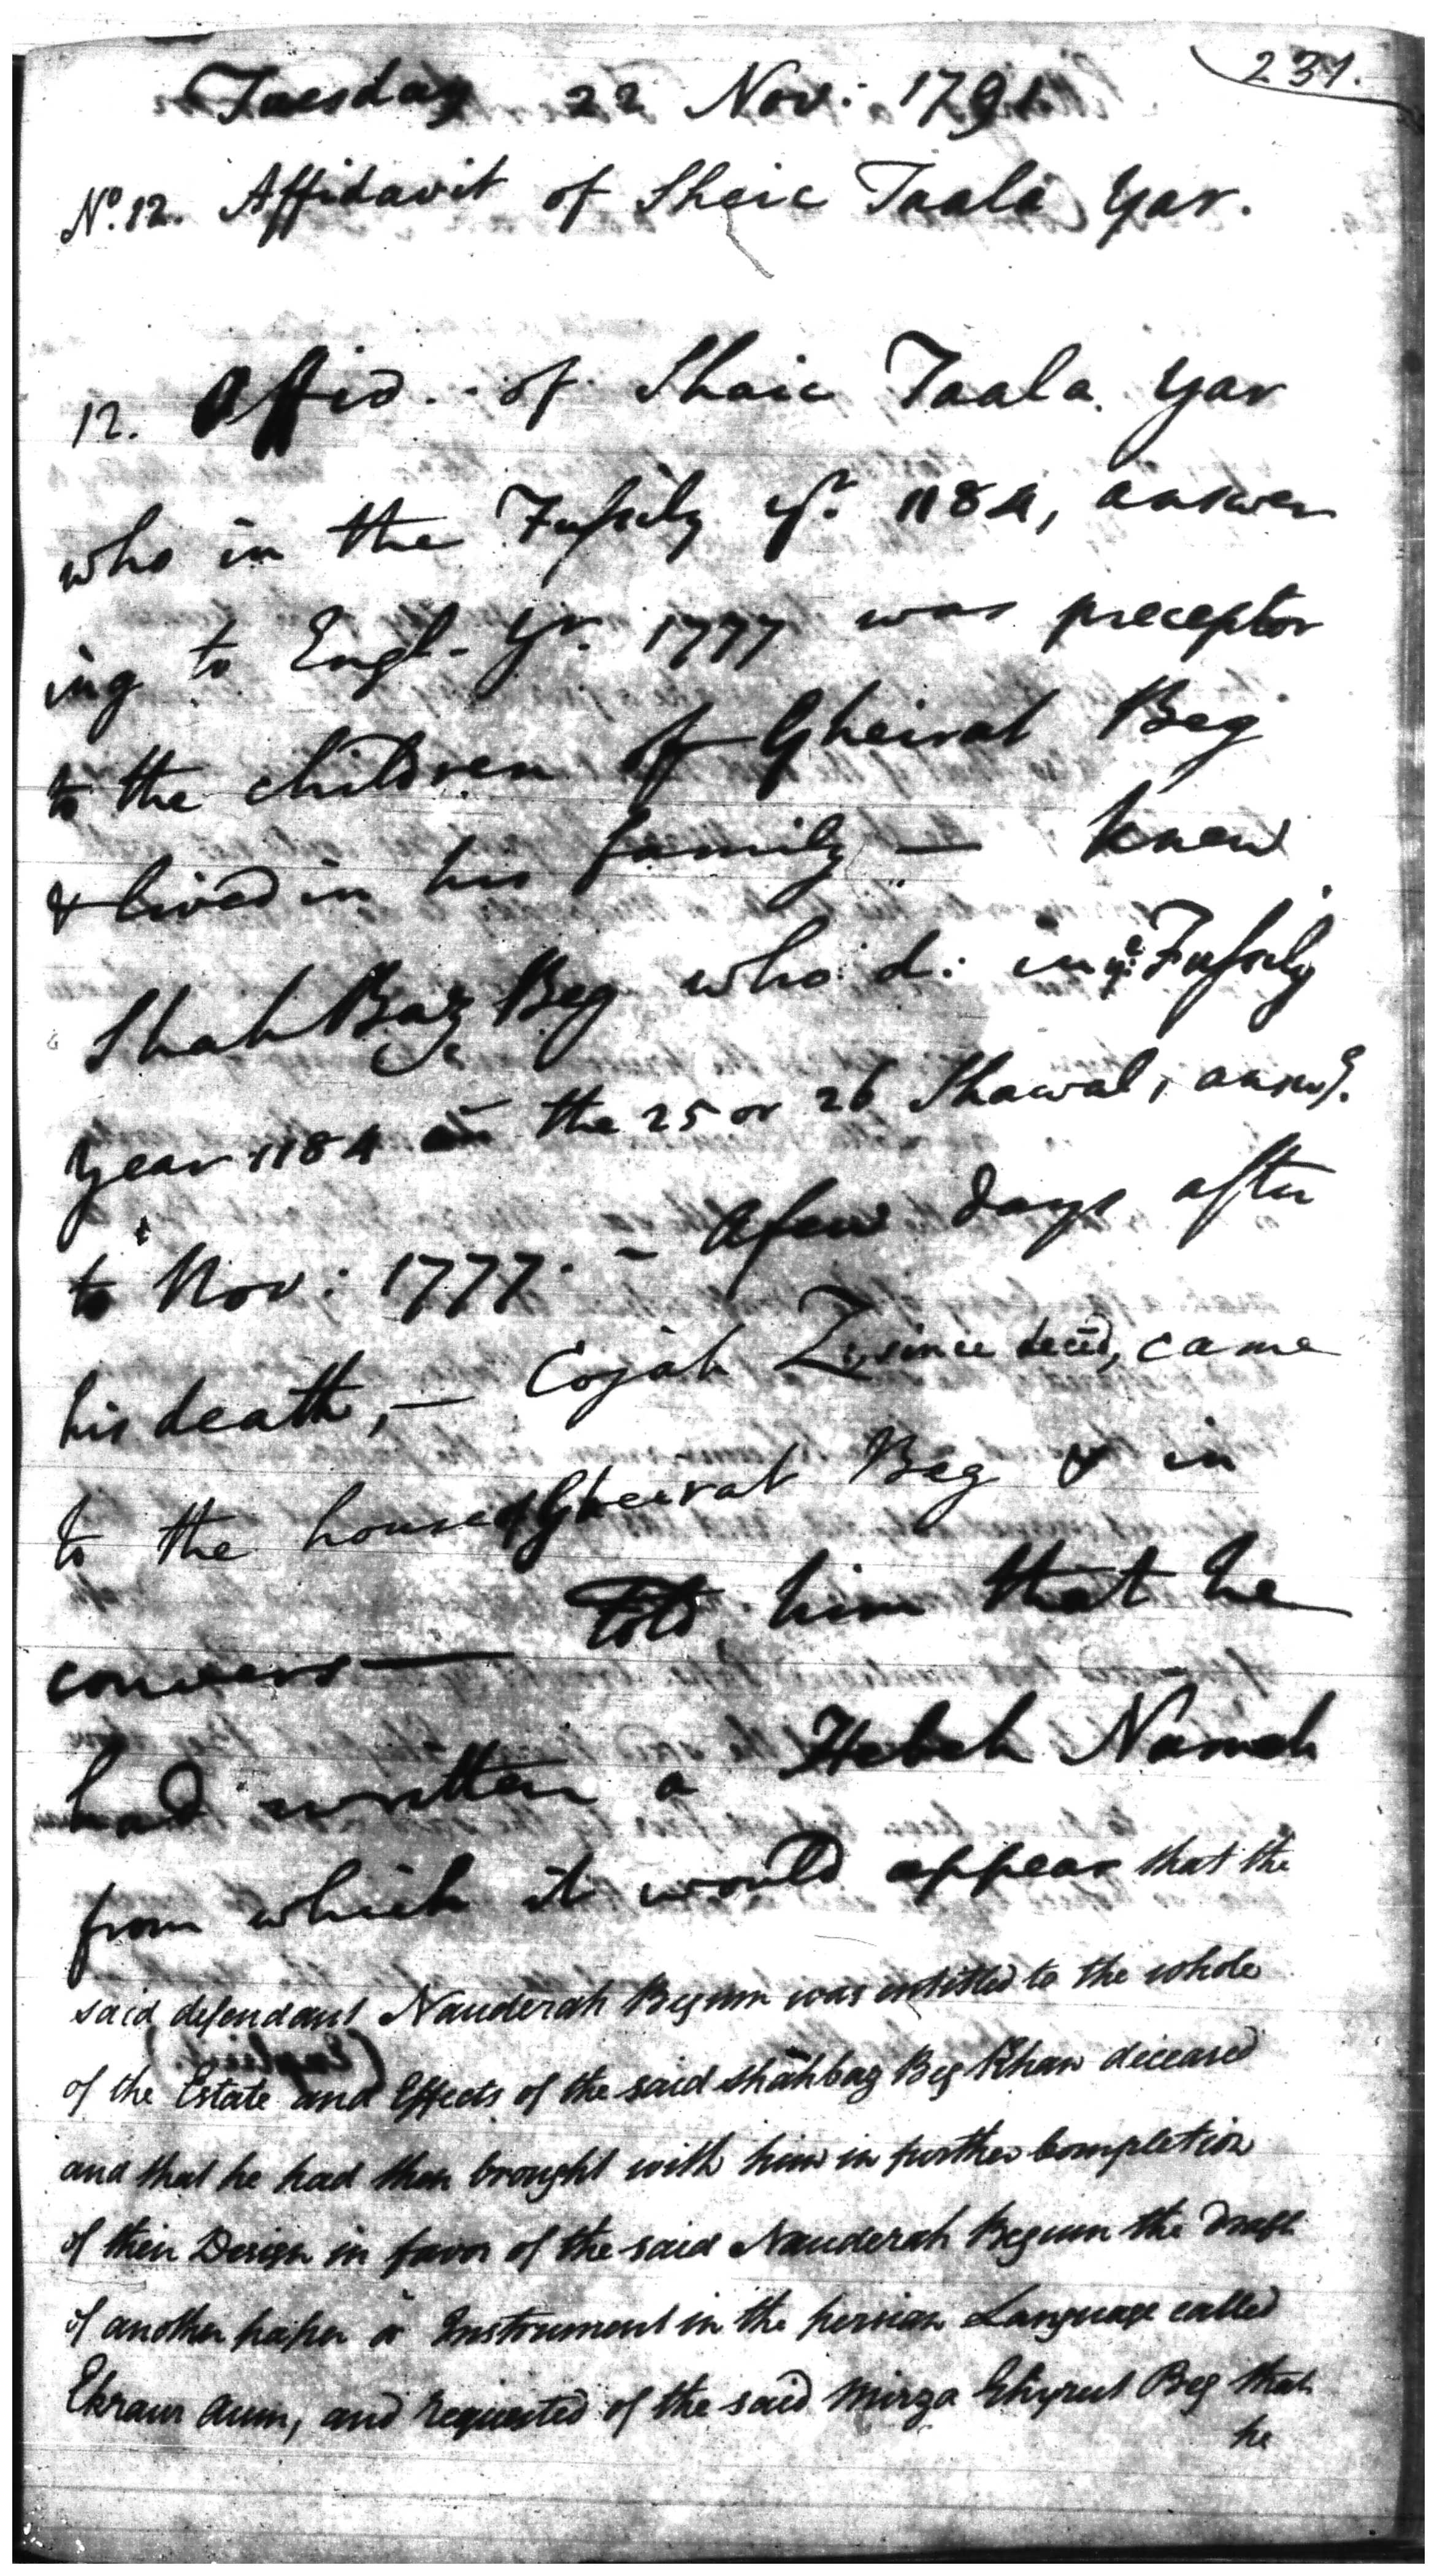 231.
Tuesday 22 Nov: 1791
No. 12. Affidavit of Sheic Taala Yar.
12. Affid. of Shaic Taala Yar
who in the Fussily yr. 1184, answer
ing to Engl. yr. 1777 was preceptor
to the children of Gheirat Beg
& lived in his family — knew
Shah Baz Beg who d: in ye Fussily
Year 1184 on the 25 or 26 Shawal, answg.
to Nov: 1777. – A few days after
his death, — Cojah Z, since decd, came
to the house of Gheirat Beg & in
convers— told him that he
had written a Hebeh Nameh
from which it would appear that the
said defendant Nauderah Begum was entitled to the whole
of the Estate and Effects of the said Shahbaz Beg Khan deceased
and that he had then brought with him in further completion
of their Design in favor of the said Nauderah Begum the draft
of another paper or Instrument in the persian Language called
Ekraur aum, and requested of the said Mirza Ghyrut Beg that
he